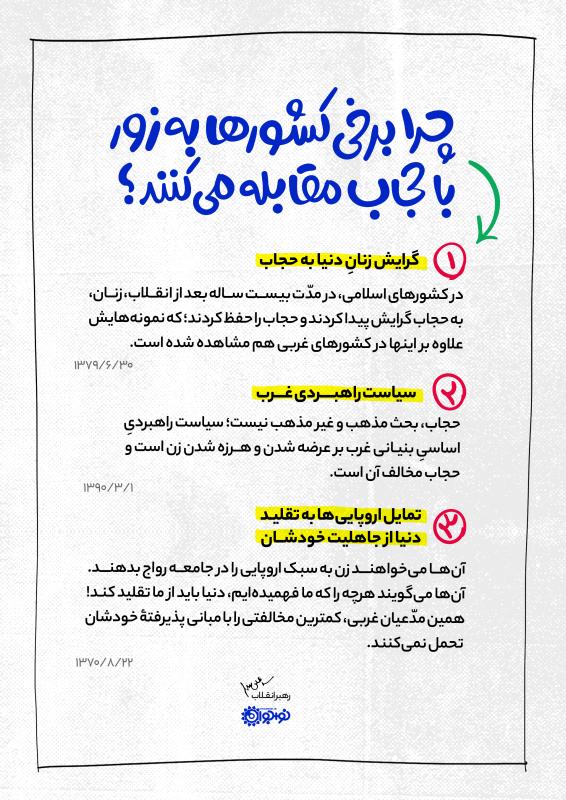 چرا برخی کشورها به زور
با حجاب مقابله می‌کنند؟
۱
گرایش زنانِ دنیا به حجاب
در کشورهای اسلامی، در مدّت بیست ساله بعد از انقلاب، زنان،
به حجاب گرایش پیدا کردند و حجاب را حفظ کردند؛ که نمونه‌هایش
علاوه بر اینها در کشورهای غربی هم مشاهده شده است.
۱۳۷۹/۶/۳۰
۲
سیاست راهبردی غرب
حجاب، بحث مذهب و غیر مذهب نیست؛ سیاست راهبردیِ
اساسیِ بنیانی غرب بر عرضه شدن و هرزه شدن زن است و
حجاب مخالف آن است.
۱۳۹۰/۳/۱
۳
تمایل اروپایی‌ها به تقلید
دنیا از جاهلیت خودشان
آن‌ها می‌خواهند زن به سبک اروپایی را در جامعه رواج بدهند.
آن‌ها می‌گویند هرچه را که ما فهمیده‌ایم، دنیا باید از ما تقلید کند!
همین مدّعیان غربی، کمترین مخالفتی را با مبانی پذیرفتهٔ خودشان
تحمل نمی‌کنند.
۱۳۷۰/۸/۲۲
رهبر انقلاب
نوجوان